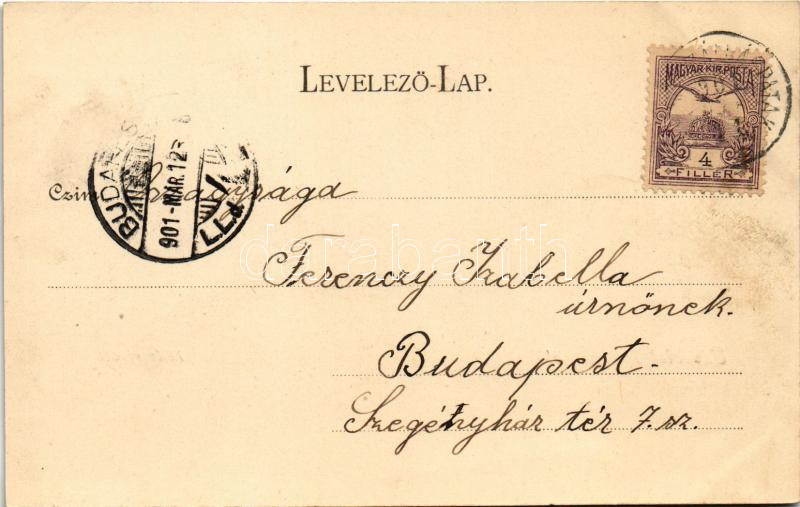 LEVELEZŐ-LAP.
MAGYAR·KIR·POSTA
4
FILLER
BUDAPES
901-MAR.12
Czim
Őnagysága
Ferenczy Izabella
úrnőnek.
Budapest.
Szegényház tér 7. sz.
darabanth